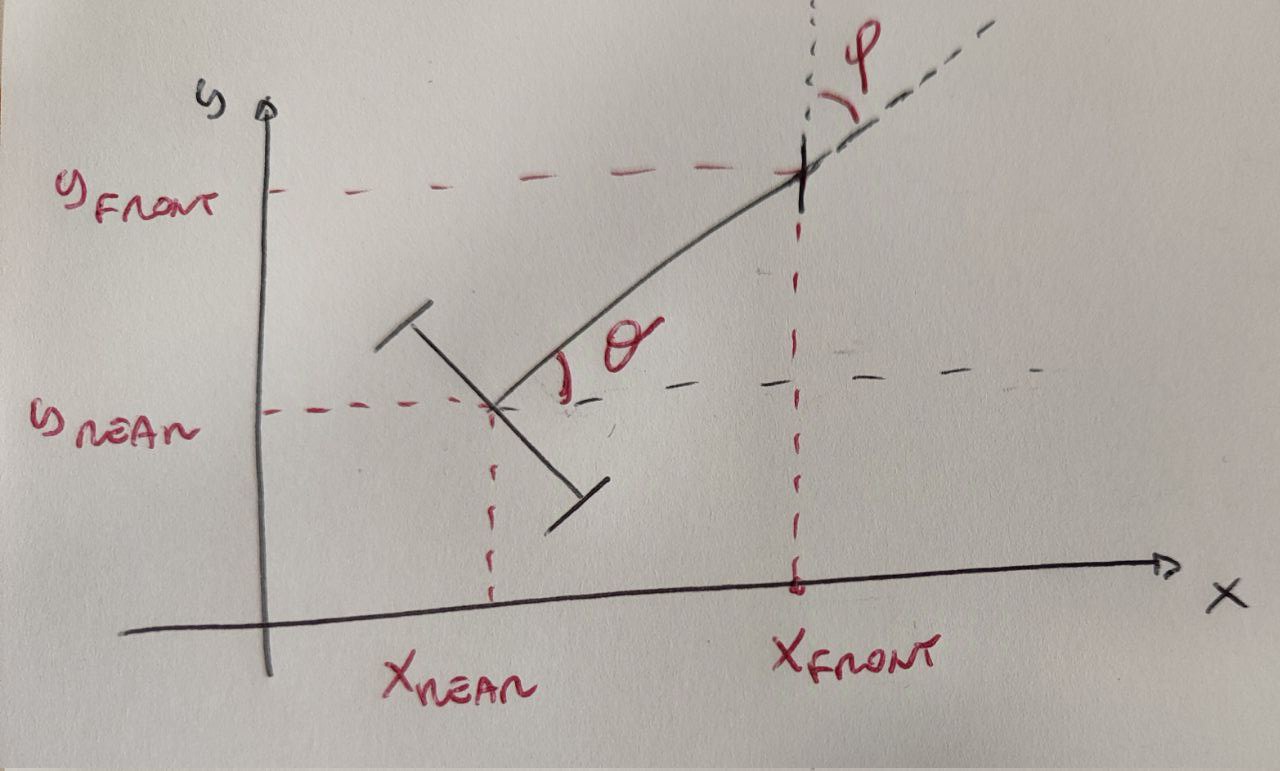 φ
y
y FRONT
θ
y REAR
x
X REAR
X FRONT